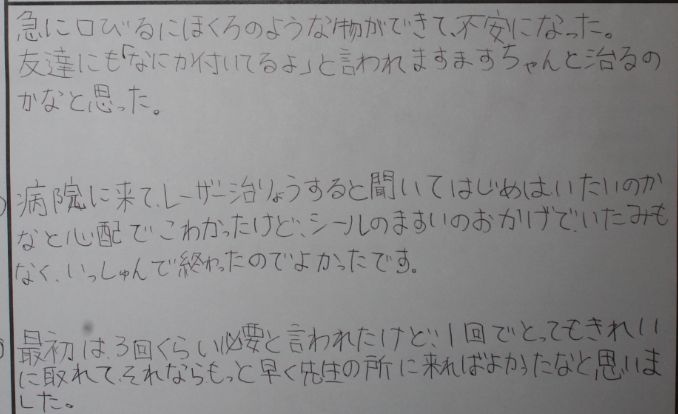 急に口びるにほくろのような物ができて、不安になった。
友達にも「なにか付いてるよ」と言われますますちゃんと治るの
かなと思った。
病院に来て、レーザー治りょうすると聞いてはじめはいたいのか
なと心配でこわかったけど、シールのますいのおかげで、いたみも
なく、いっしゅんで終わったのでよかったです。
最初は、3回くらい必要と言われたけど、1回でとってもきれい
に取れて、それならもっと早く先生の所に来ればよかったなと思いま
した。